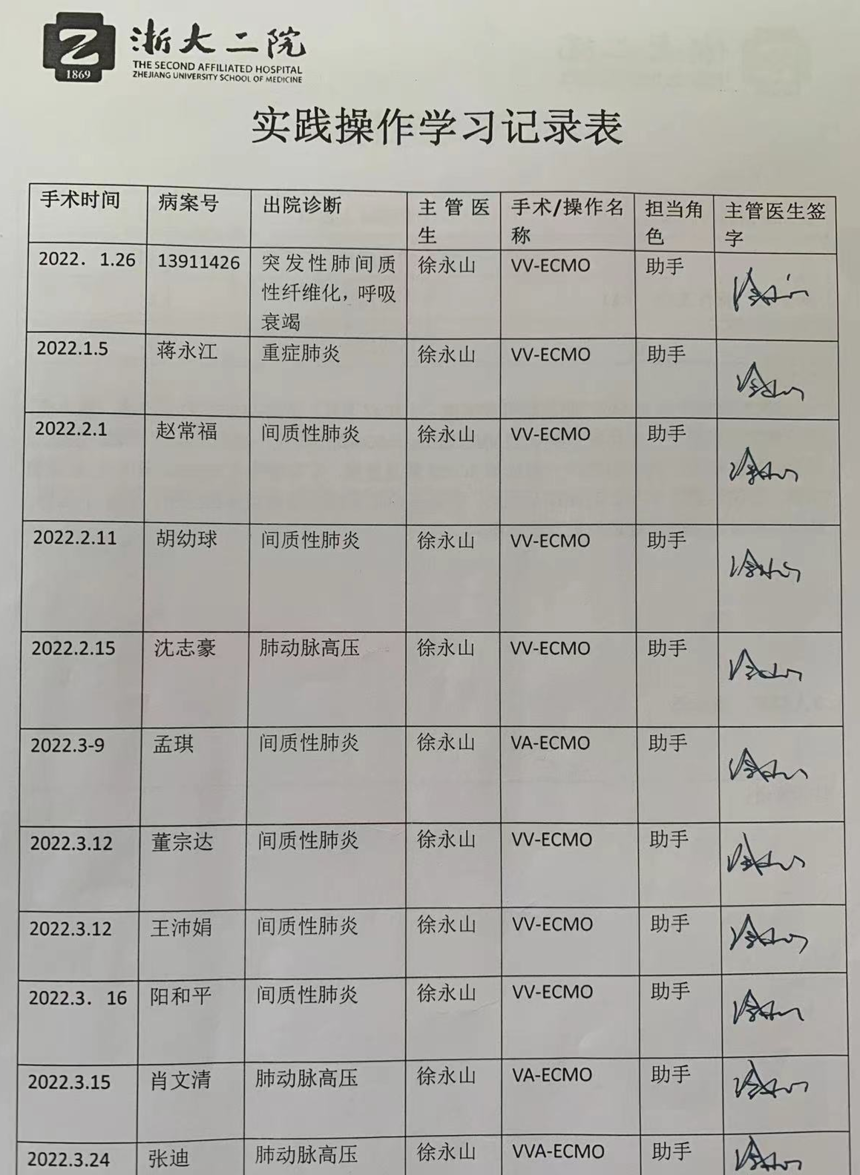 浙大二院
THE SECOND AFFILIATED HOSPITAL
ZHEJIANG UNIVERSITY SCHOOL OF MEDICINE
1869
实践操作学习记录表
手术时间 病案号 出院诊断 主管医生 手术/操作名称 担当角色 主管医生签字
2022. 1.26 13911426 突发性肺间质性纤维化，呼吸衰竭 徐永山 VV-ECMO 助手
2022.1.5 蒋永江 重症肺炎 徐永山 VV-ECMO 助手
2022.2.1 赵常福 间质性肺炎 徐永山 VV-ECMO 助手
2022.2.11 胡幼球 间质性肺炎 徐永山 VV-ECMO 助手
2022.2.15 沈志豪 肺动脉高压 徐永山 VV-ECMO 助手
2022.3-9 孟琪 间质性肺炎 徐永山 VA-ECMO 助手
2022.3.12 董宗达 间质性肺炎 徐永山 VV-ECMO 助手
2022.3.12 王沛娟 间质性肺炎 徐永山 VV-ECMO 助手
2022.3. 16 阳和平 间质性肺炎 徐永山 VV-ECMO 助手
2022.3.15 肖文清 肺动脉高压 徐永山 VA-ECMO 助手
2022.3.24 张迪 肺动脉高压 徐永山 VVA-ECMO 助手